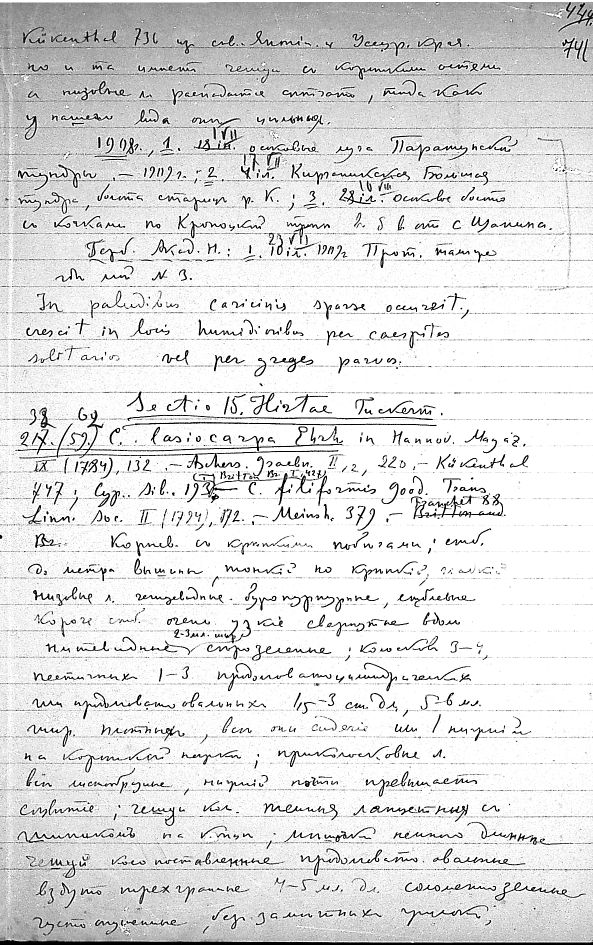 444.
741
Kükenthal 736 из сов. Япони. и Уссур. края.
но и та имеет чешуи с короткими остями
а низовые л. распадаются сетчато, тогда как
у нашего вида они цельные.
1908г., 1. VII осоковые луга Паратунской
тундры. — 1909г.; 2. VII Большая
тундра, болота старицы р. К.; 3. VIII осоковое болото
с кочками по тропе в 5 в от с
Герб. Акад. Н.: 1. VII 1909 Прот. там же
где мой N 3.
In paludibus caricinis sparse occurrit,
crescit in locis humidioribus per caespites
solitarios vel per greges parvos.
Sectio 15. Hirtae Tuckerm.
38 62
217. (59) C. lasiocarpa Ehrh in Hannov. Magaz.
IX (1784), 132. — Aschers. Graebn. II, 2, 220. — Kükenthal
747; Cyp. Sib. 193 — C. filiformis Good. Trans
Linn. Soc. II (1794), 172. — Meinsh. 379. — Franchet 88
Britton and
Br. Корнев. с крепкими побегами; стб.
до метра вышины, тонкий но крепкий, гладкий
низовые л. чешуевидные буропурпурные, стеблевые
короче стб. очень узкие свернутые вдоль
2-3 мл. шир.
нитевидные серозеленые; колосков 3-4,
пестичных 1-3 продолговатоцилиндрических
или продолговато овальных 1,5-3 см дл, 5-6 мл.
шир. плотных, все они сидячие или 1 нижний
на короткой ножке; приколосковые л.
все листообразные, нижний почти превышает
соцветие; чешуи кол. темныя ланцетныя с
шипиком на конце; мешочки немного длиннее
чешуй косо поставленные продолговато овальные
вздуто трехгранные 4-5 мл. дл. соломенозеленые
густо опушенные, без заметных